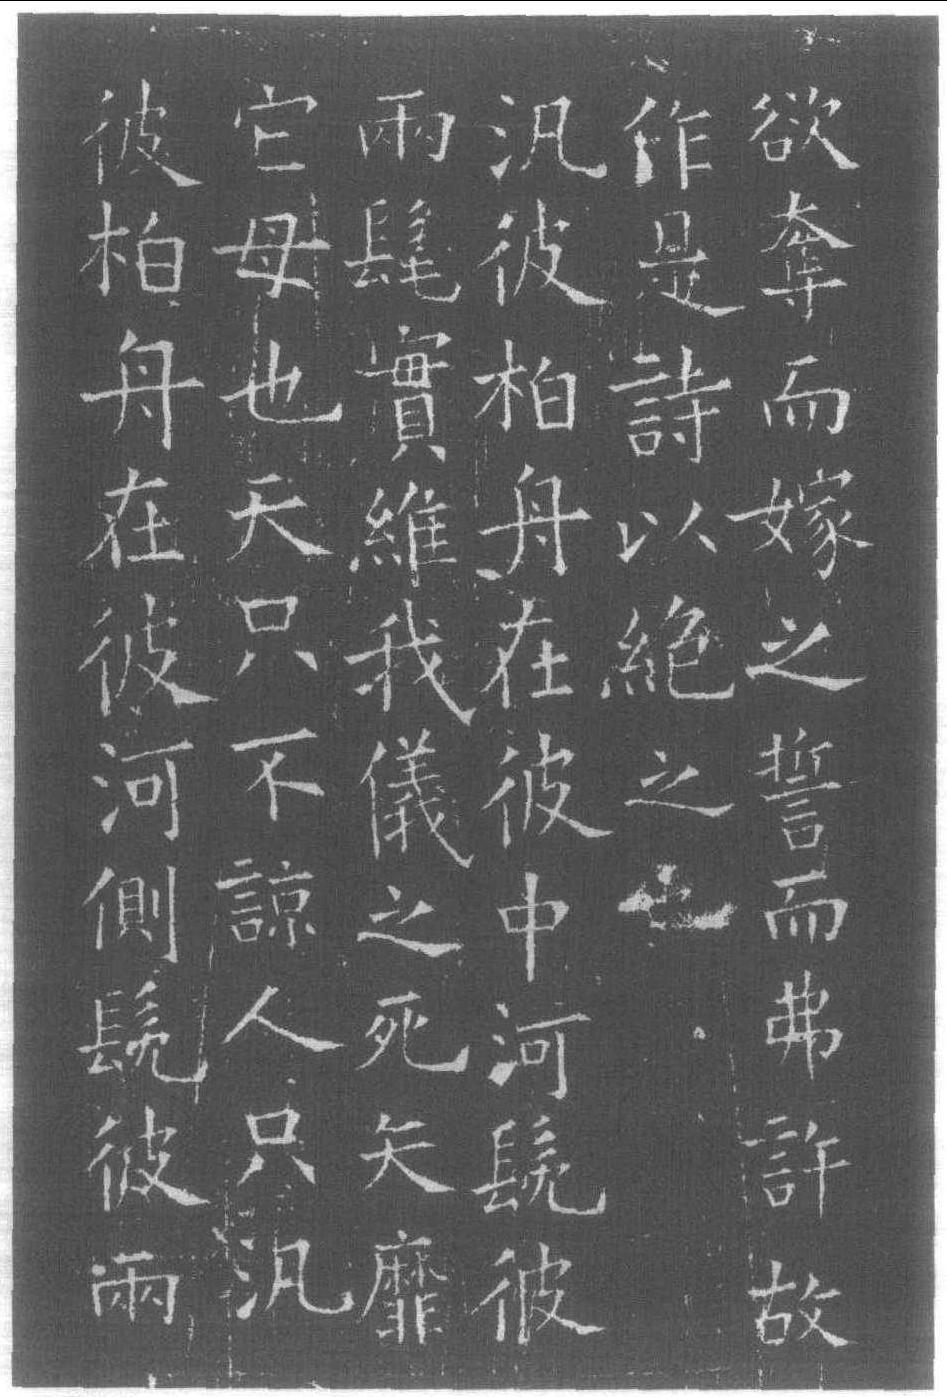 欲奪而嫁之誓而弗許故
作是詩以絕之也
汎彼柏舟在彼中河髧彼
兩髦實維我儀之死矢靡
它母也天只不諒人只汎
彼柏舟在彼河側髧彼兩